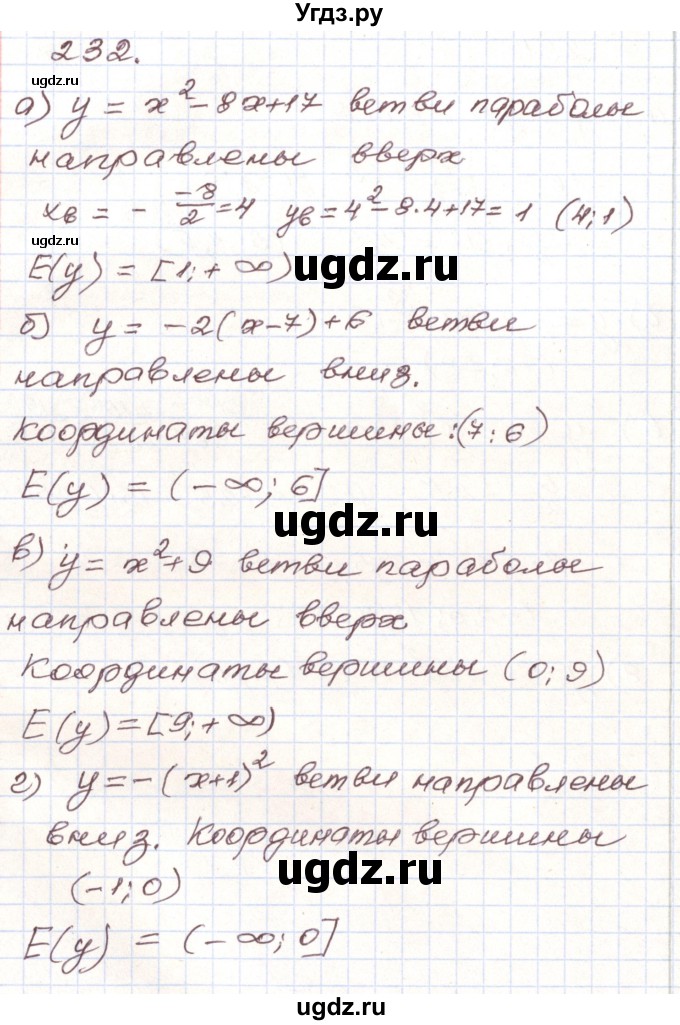 Угдз.ру
232.
ugdz.ru
а) y = x²-8x+17 ветви параболы
направлены вверх
ugdz.ru
xв = - -8/2 = 4 yв = 4²-8·4+17= 1 (4;1)
ugdz.ru
E(y) = [1;+∞)
б) y = -2(x-7)+6 ветви
направлены вниз.
координаты вершины:(7:6)
E(y) = (-∞;6]
ugdz.ru
в) y= x²+9 ветви параболы
направлены вверх
Координаты вершины (0;9)
E(y)=[9;+∞)
г) y=-(x+1)² ветви направлены
вниз. Координаты вершины
ugdz.ru
(-1;0)
E(y) = (-∞;0]
ugdz.ru